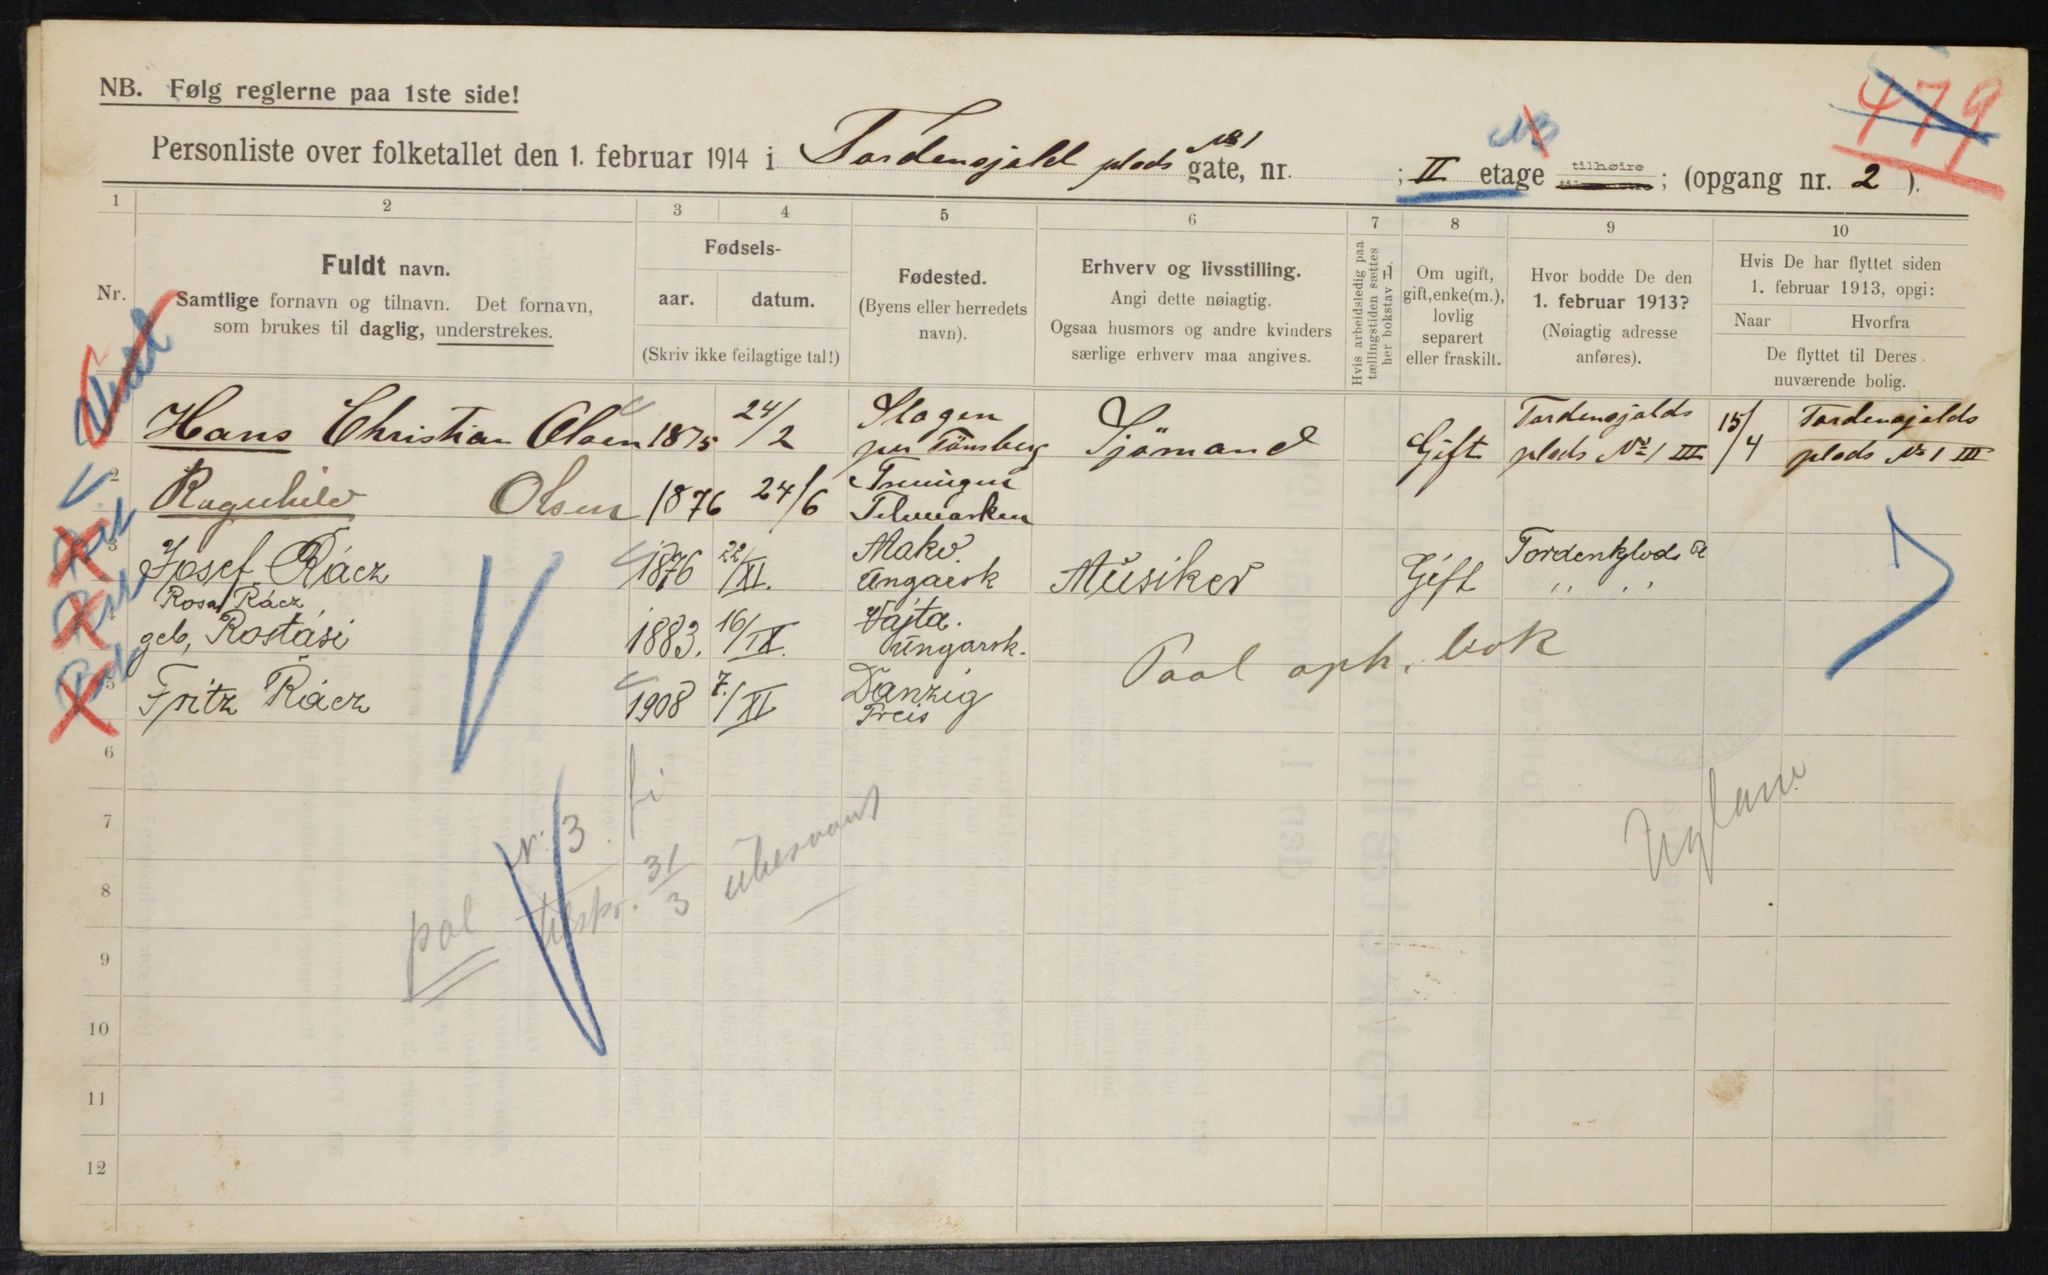 NB. Følg reglerne paa 1ste side!
479
Personliste over folketallet den 1. februar 1914 i Tordensjold plads No 1 gate, nr. ; II etage tilhøire ; (opgang nr. 2 ).
1 2 3 4 5 6 7 8 9 10
Nr.
Fuldt navn.
Samtlige fornavn og tilnavn. Det fornavn,
som brukes til daglig, understrekes.
Fødsels-
aar. datum.
(Skriv ikke feilagtige tal!)
Fødested.
(Byens eller herredets
navn).
Erhverv og livsstilling.
Angi dette nøiagtig.
Ogsaa husmors og andre kvinders
særlige erhverv maa angives.
Hvis arbeidsledig paa
tællingstiden sættes
her bokstav L.
Om ugift,
gift, enke(m.),
lovlig
separert
eller fraskilt.
Hvor bodde De den
1. februar 1913?
(Nøiagtig adresse
anføres).
Hvis De har flyttet siden
1. februar 1913, opgi:
Naar Hvorfra
De flyttet til Deres
nuværende bolig.
Hans Christian Olsen 1875 24/2 Slagen Sjömand Gift Tordensjolds 15/4 Tordensjolds
per Tönsberg plads No 1 III plads No 1 III
2 Ragnhild Olsen 1876 24/6
Telemarken
3 Josef Rácz 1876 22/XI. Mako. Musiker Gift
Ungarsk " "
4 Rosa Rácz
geb, Rostási 1883. 16/IX. Vajta.
Ungarsk.
5 Fritz Rácz 1908 7./XI Danzig
Preis
6
7
8
9
10
11
12
nr. 3
pol tilskr. 31/3 ubesvart